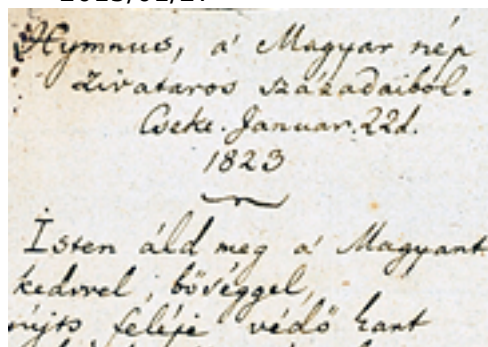 Hymnus, a' Magyar nép
zivataros századaiból.
Cseke. Januar. 22d.
1823
Isten áld meg a' Magyart
kedvvel, bőséggel,
nyújts feléje védő kart